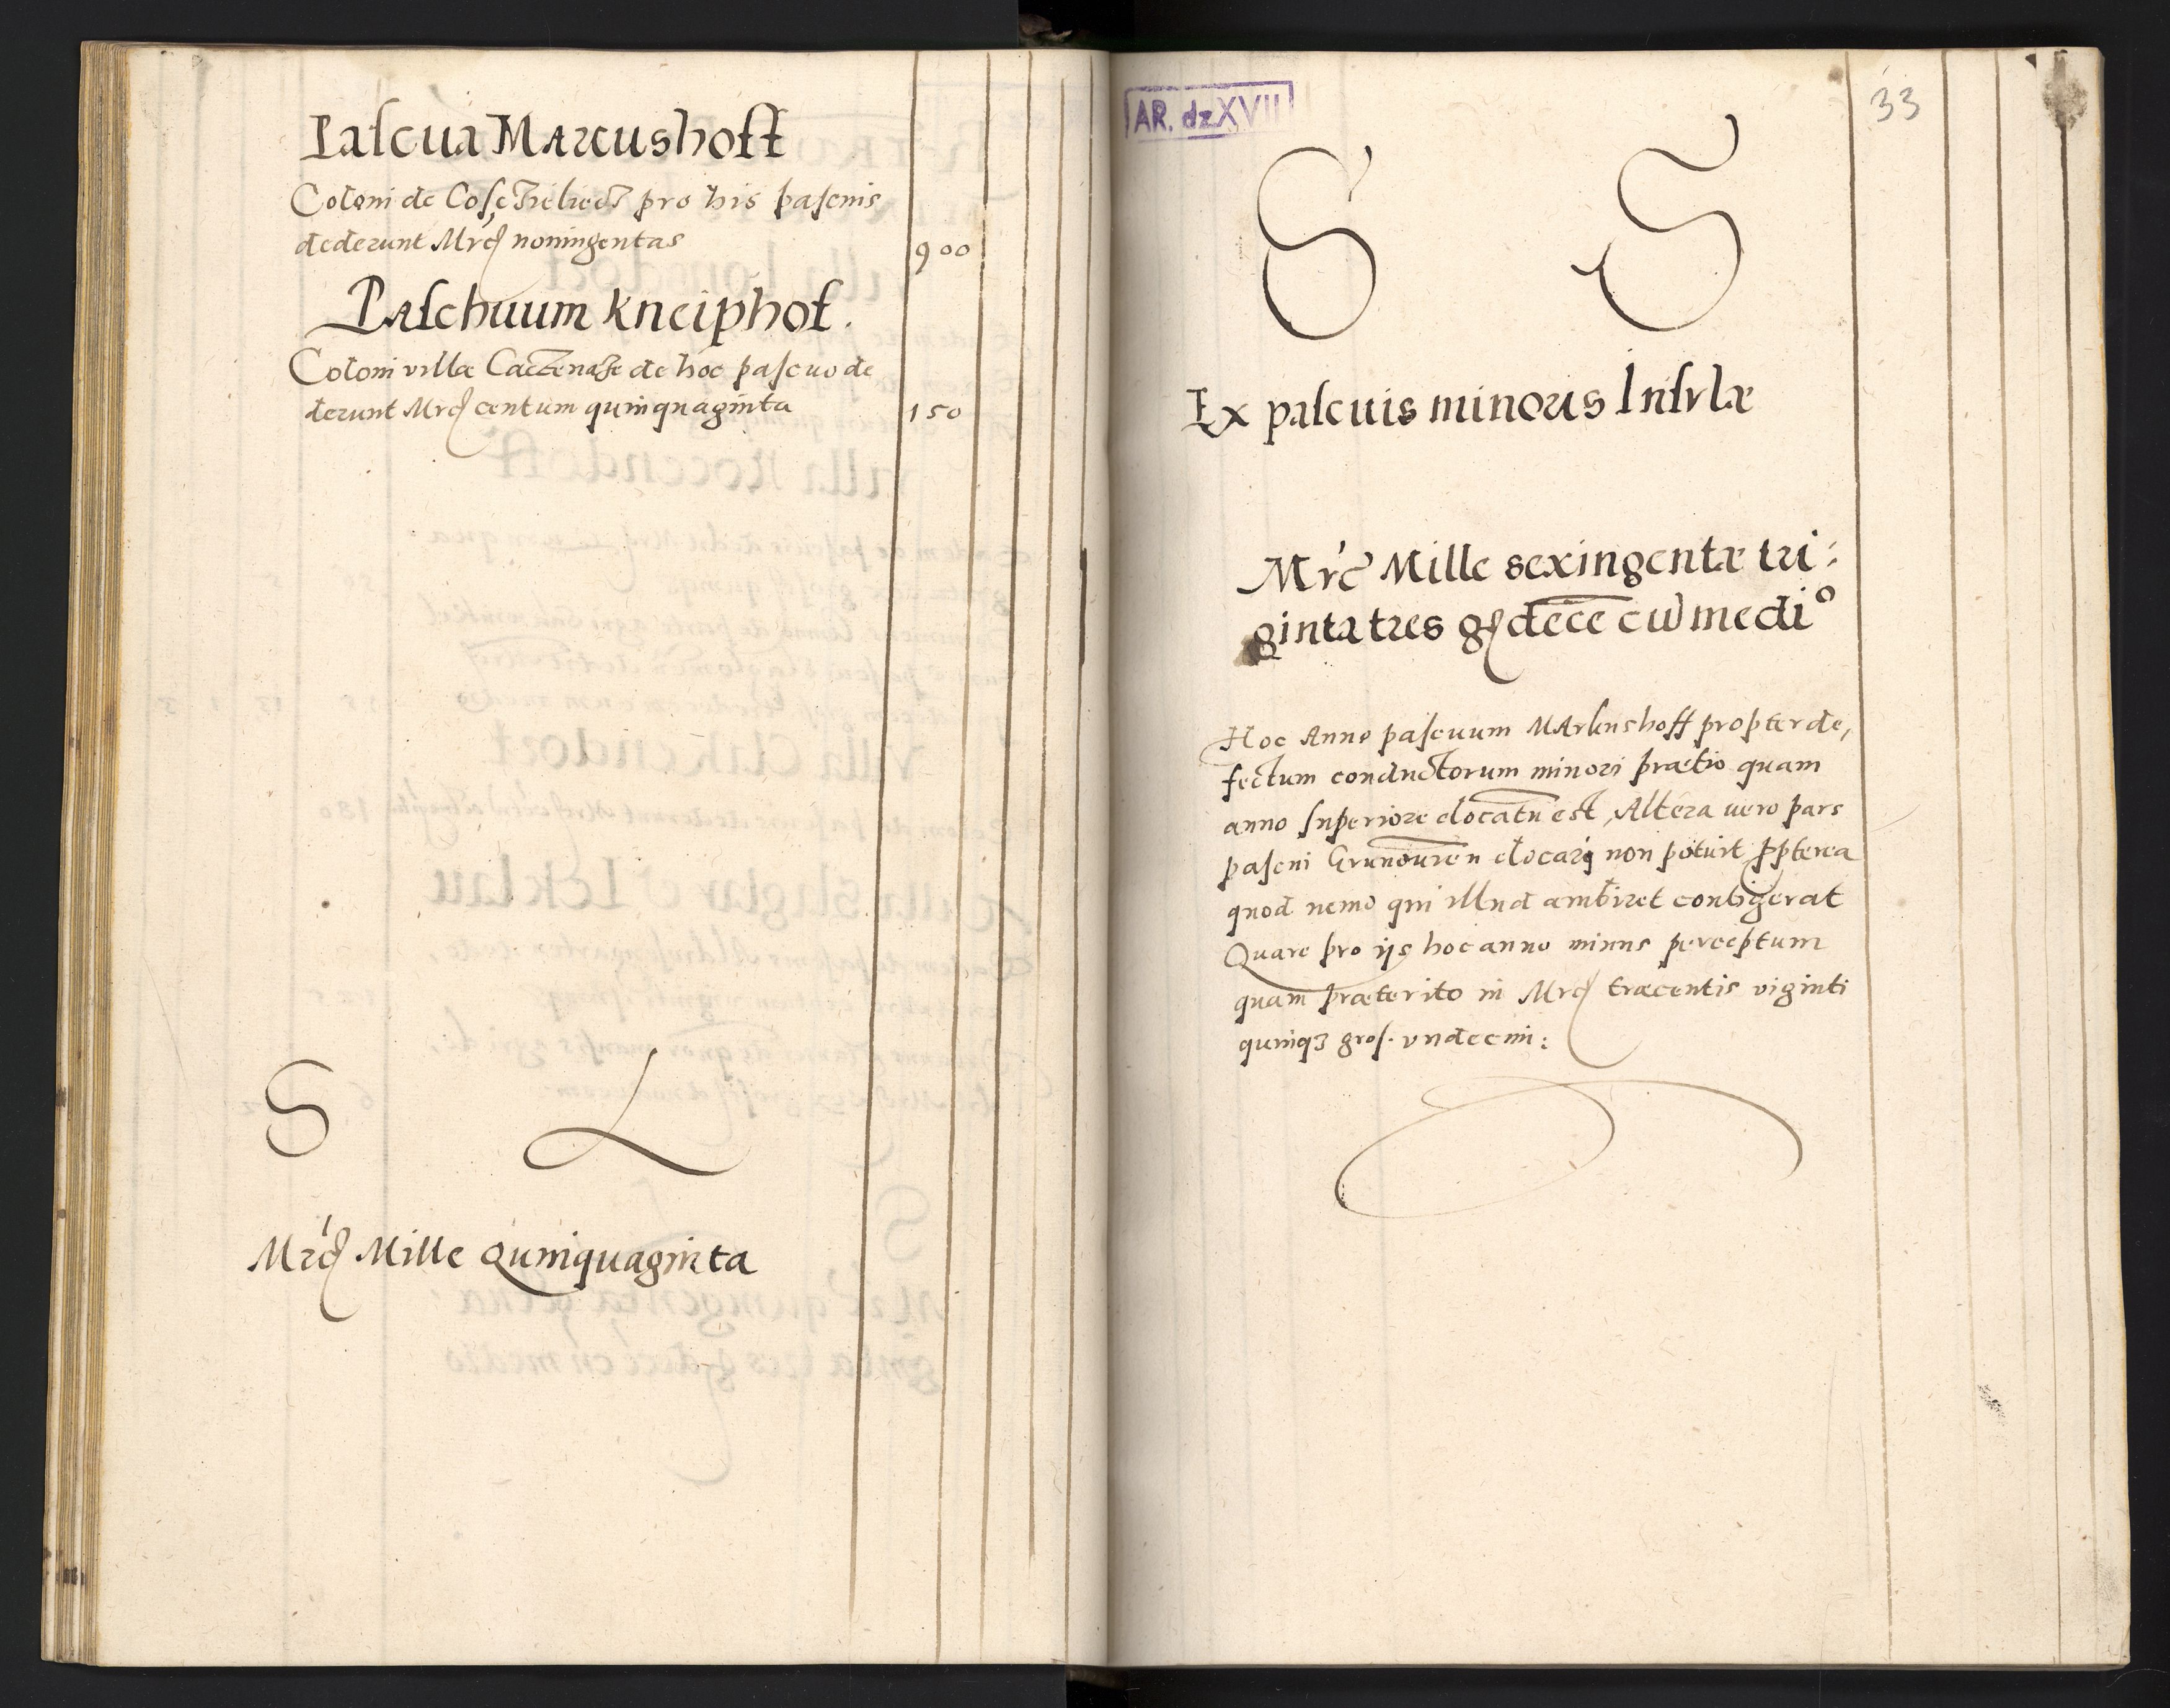 Pascua Marcushoff
Coloni de pro his pascuis
dederunt Mrc noningentas 900
Paschuum Kneiphof.
Coloni villæ de hoc pascuo de
derunt Mrc centum quinquaginta 150
S L
Mrc Mille Quinquaginta
AR. dz XVII
33
S S
Ex pascuis minoris Insulæ
Mrc Mille sexingentæ tri:
ginta tres g decē cū medio
Hoc Anno pascuum Markushoff propter de,
fectum conductorum minori prætio quam
anno superiore elocatū est, Altera uero pars
pascui elocari non potuit ppterea
quod nemo qui illud ambiret contigerat
Quare pro ijs hoc anno minus perceptum
quam præterito in Mrc træcentis viginti
quinqꝫ gros. vndecim: